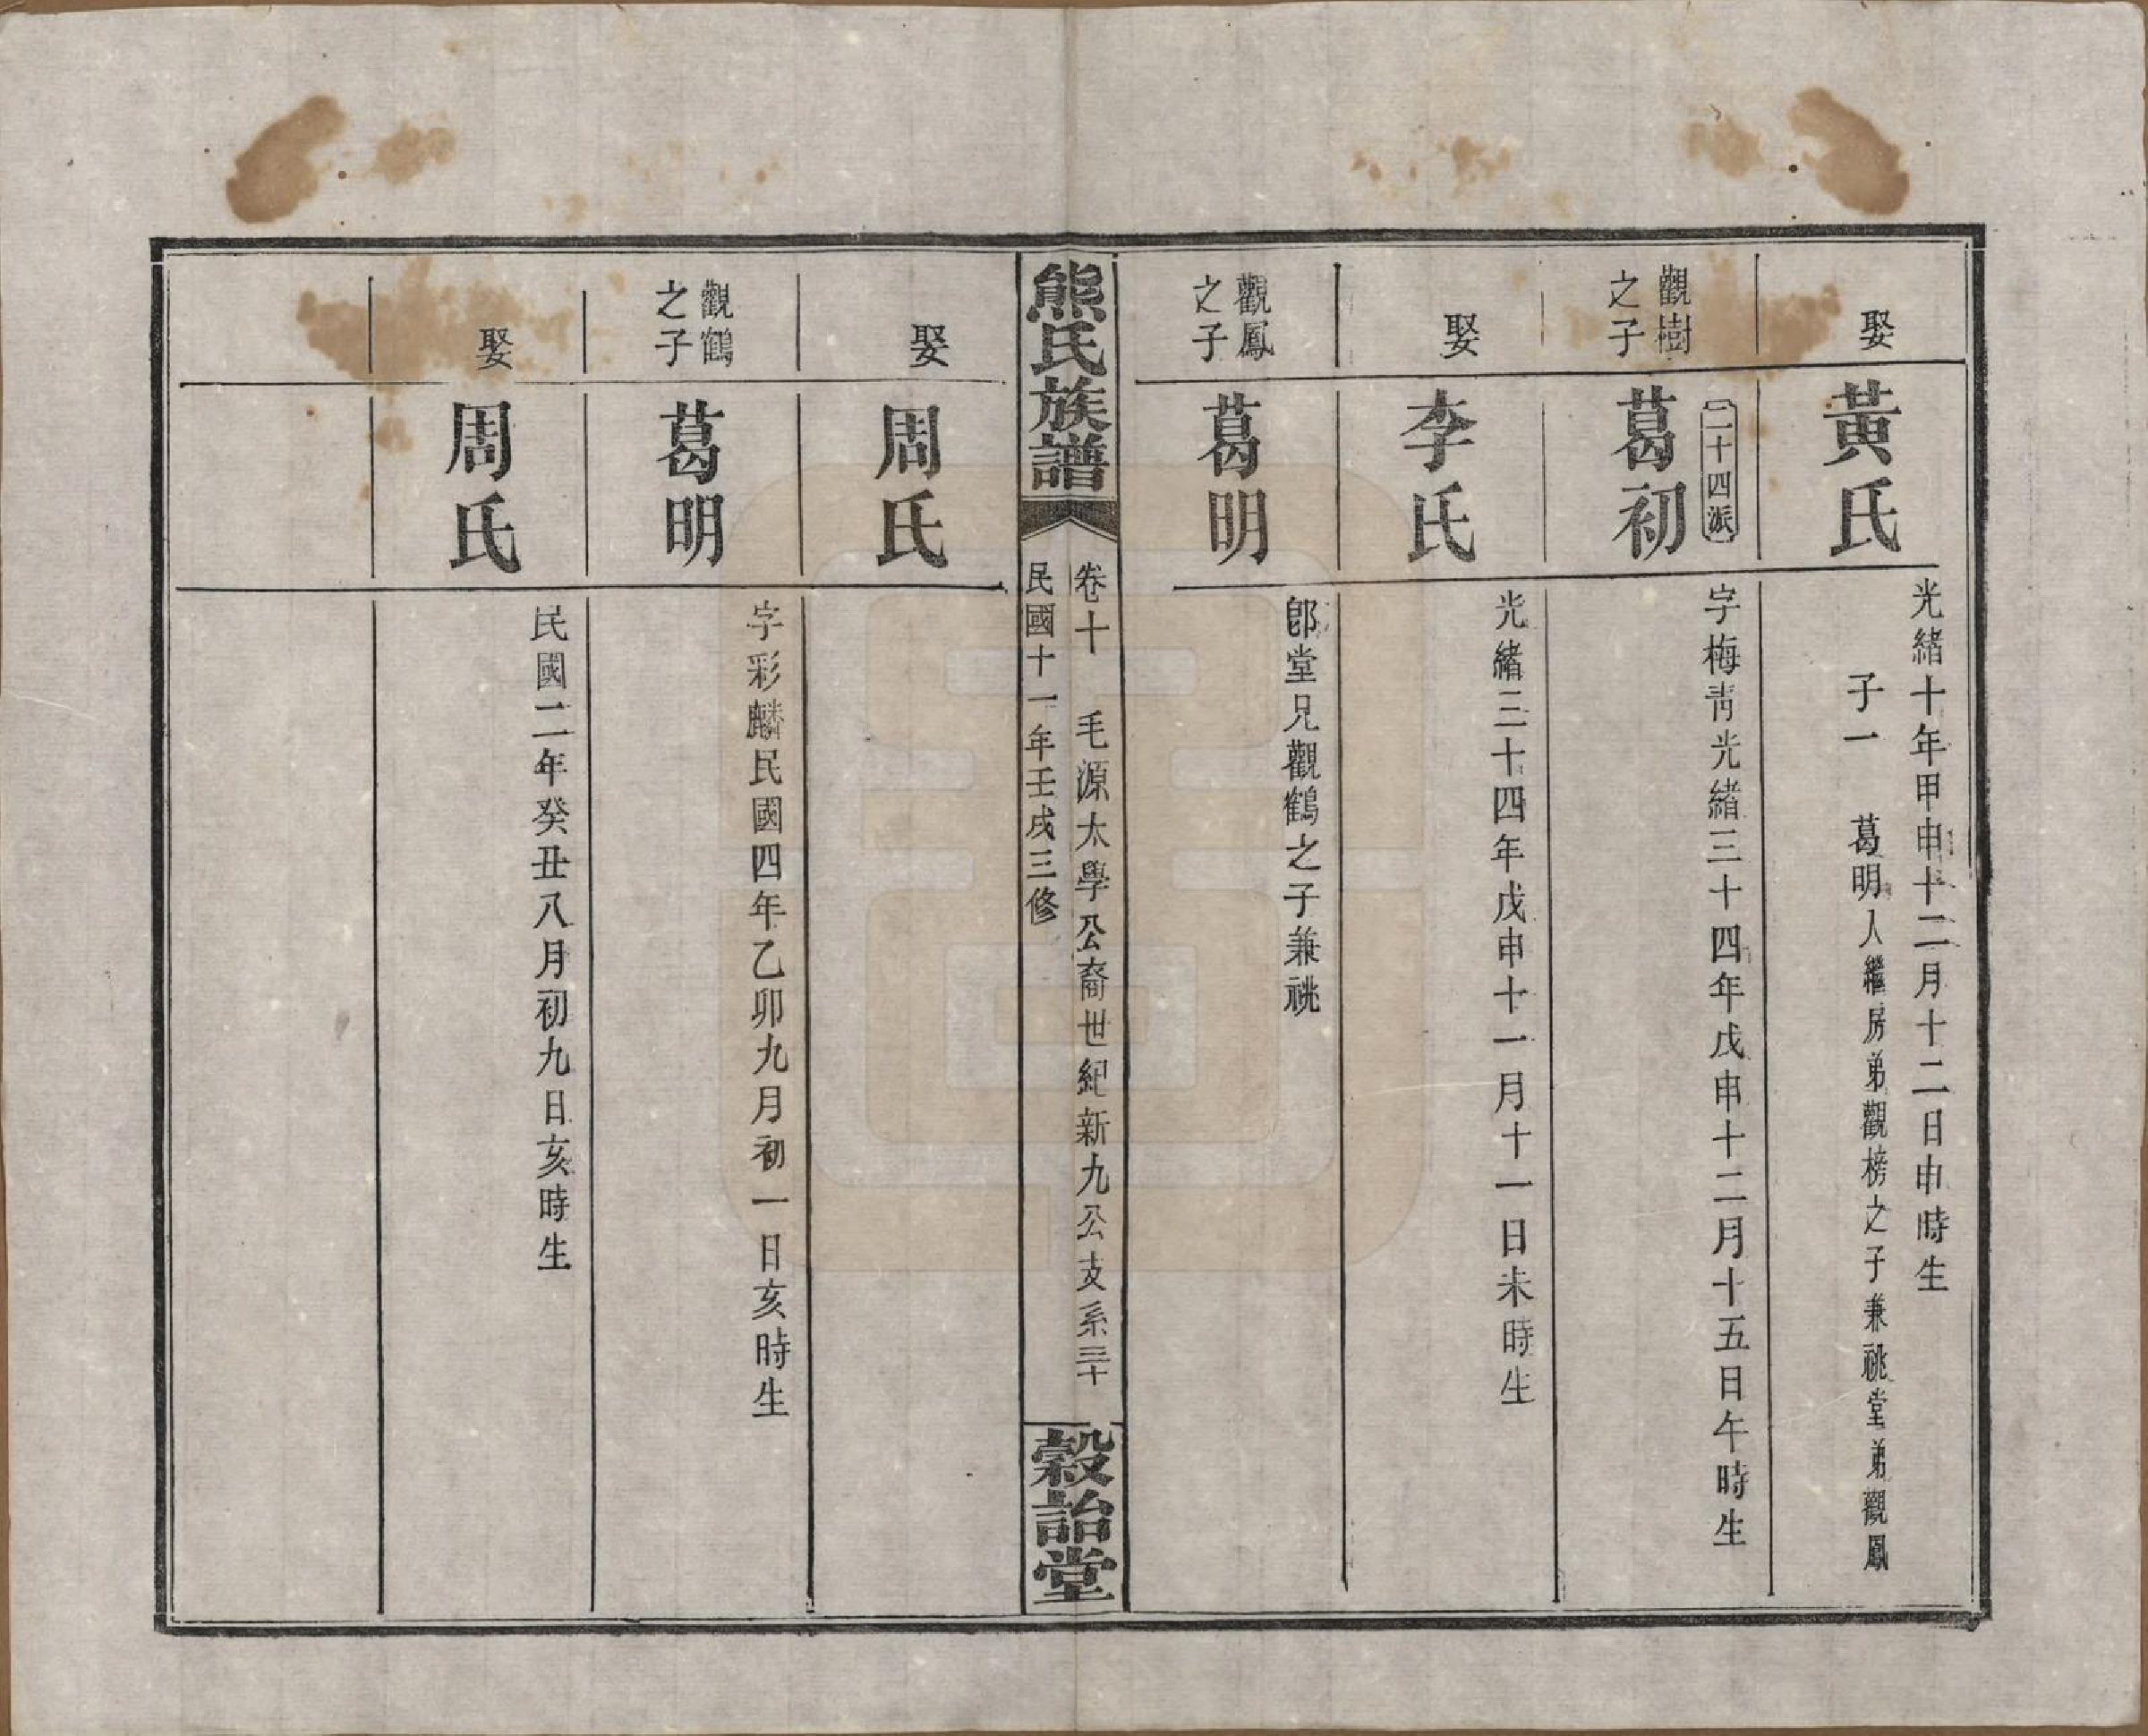 娶
黃氏
光緒十年甲申十二月十二日申時生
子一 葛明人繼房弟觀榜之子兼祧堂弟觀鳳
觀樹
之子
二十四派
葛初
字梅靑光緒三十四年戊申十二月十五日午時生
娶
李氏
光緒三十四年戊申十一月十一日未時生
觀鳳
之子
葛明
卽堂兄觀鶴之子兼祧
熊氏族譜
卷十 毛源太學公裔世紀新九公支系三十
民國十一年壬戌三修
穀詒堂
娶
周氏
觀鶴
之子
葛明
字彩麟民國四年乙卯九月初一日亥時生
娶
周氏
民國二年癸丑八月初九日亥時生